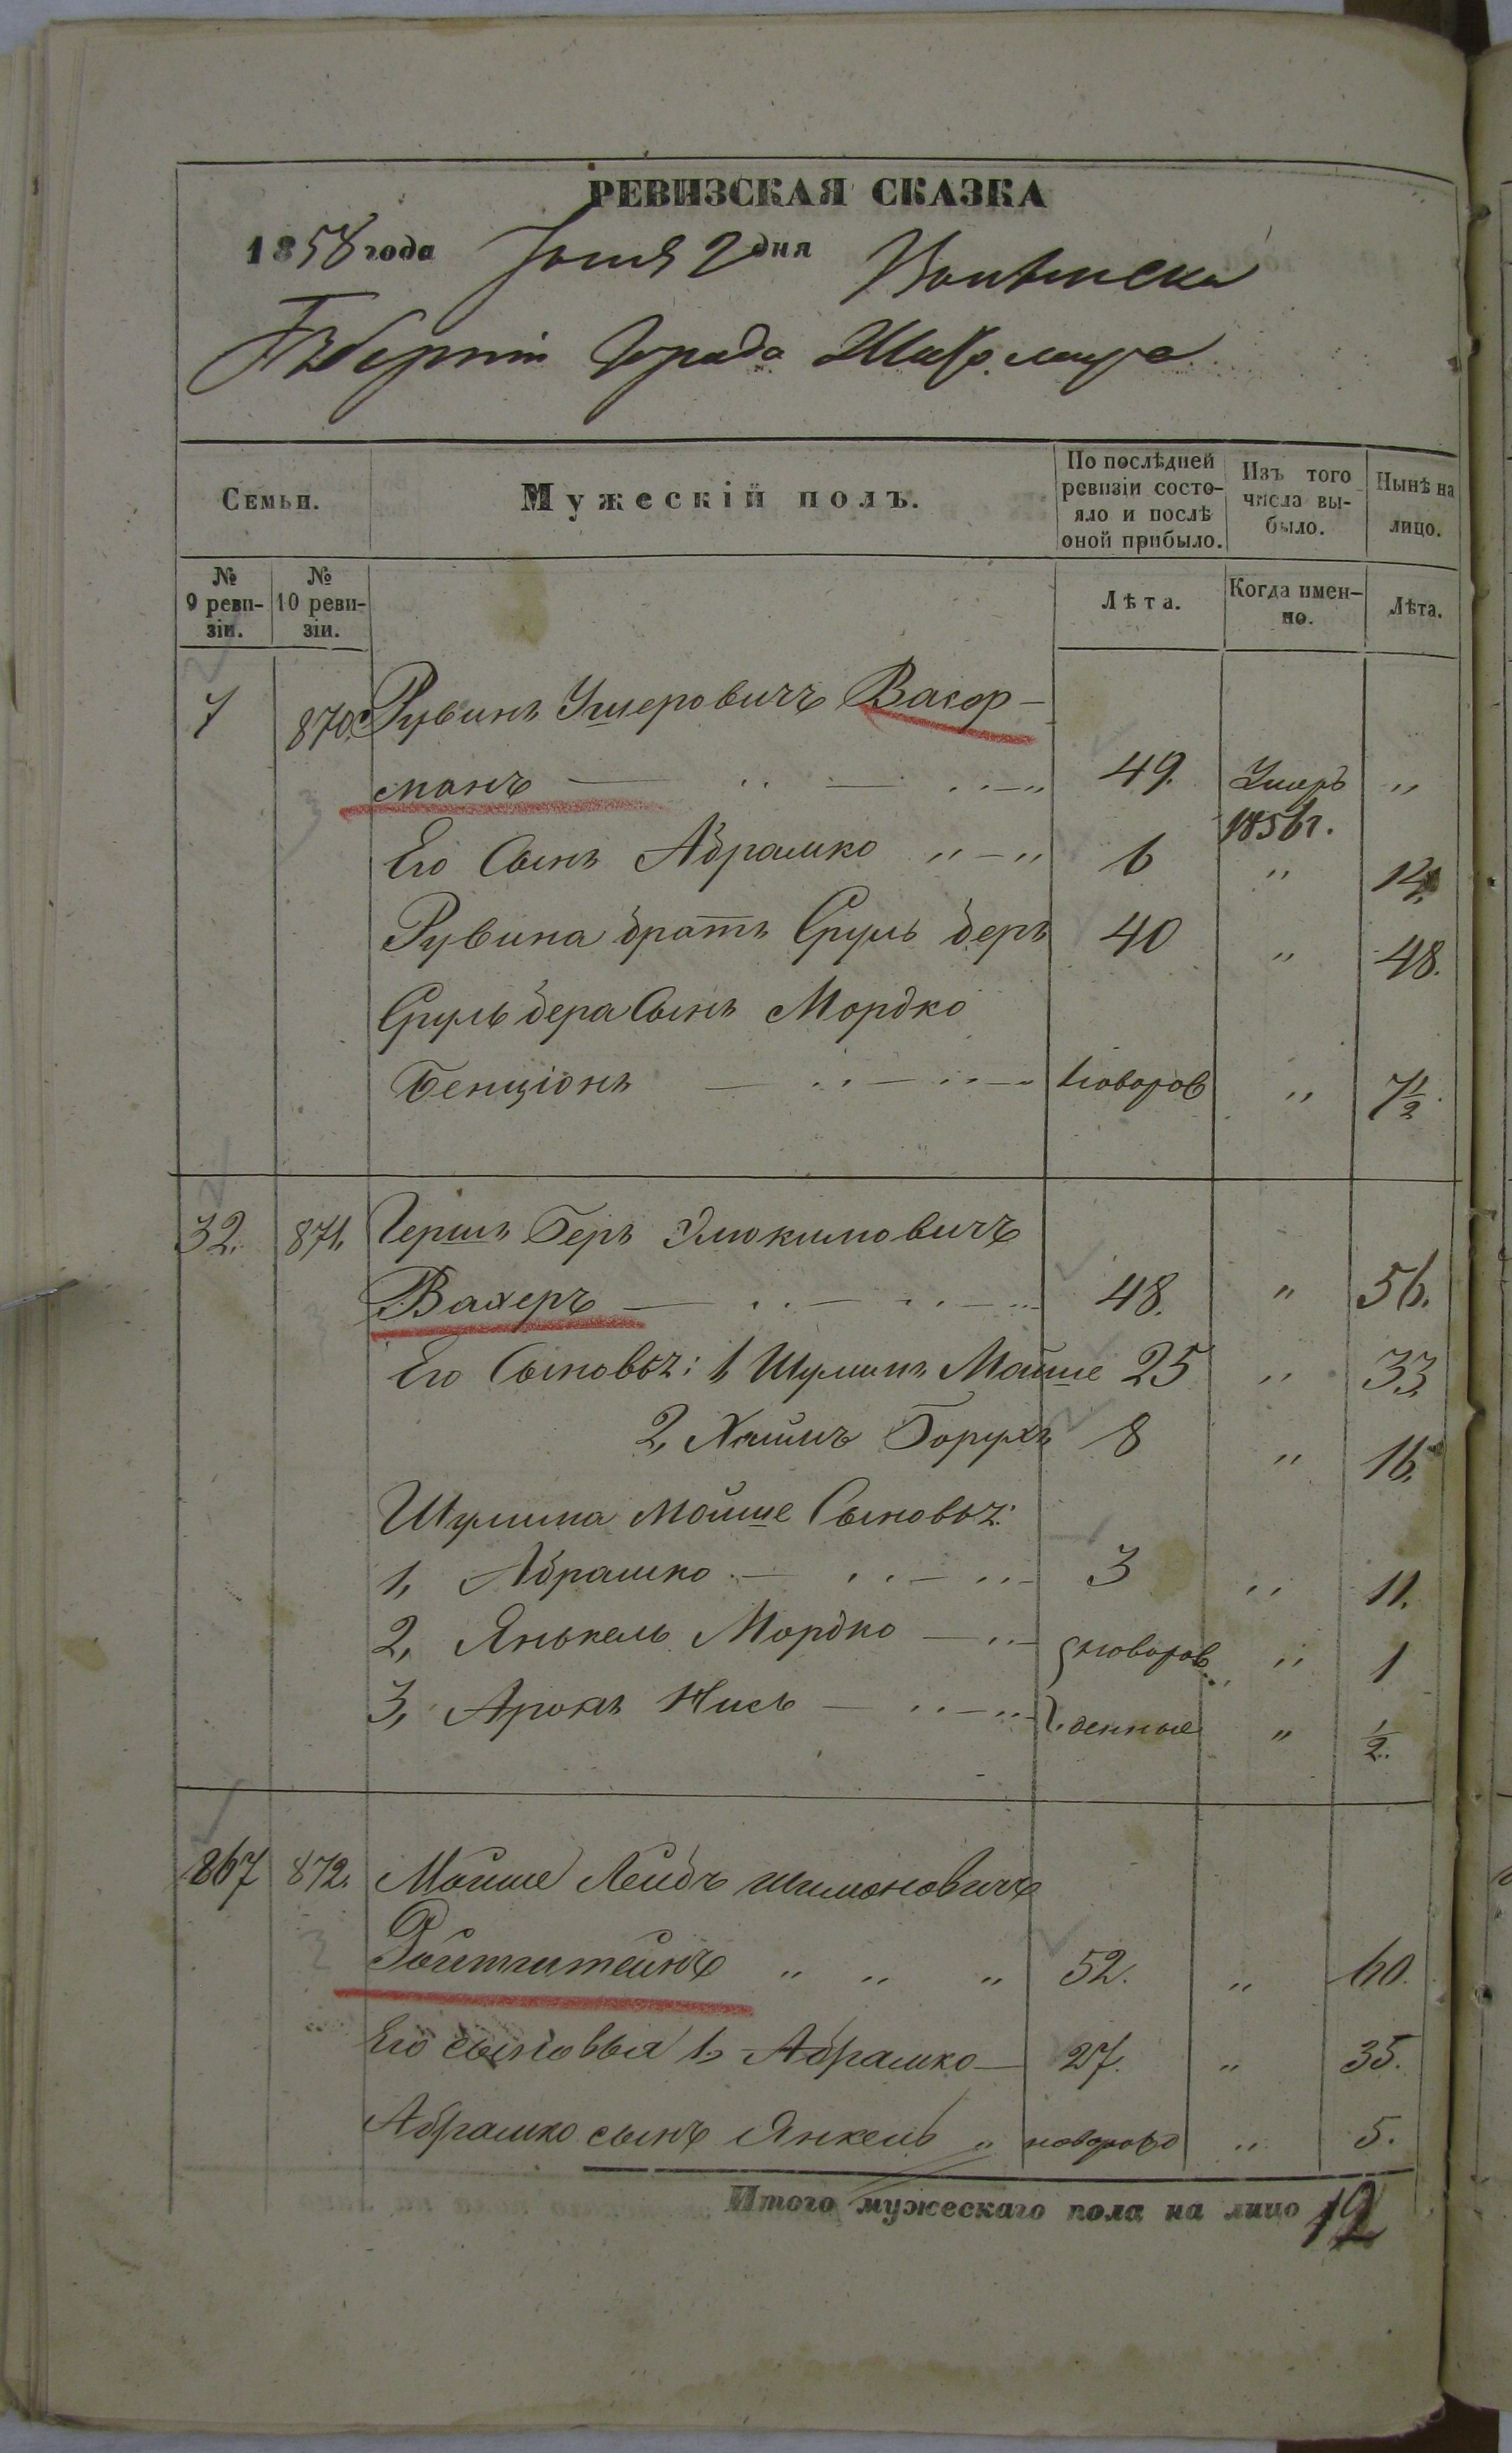 РЕВИЗСКАЯ СКАЗКА
1858 года Юня 2 дня Волынской
Губерніи Города Житомира
Семьи.
Мужескій полъ.
По послѣдней ревизіи состояло и послѣ оной прибыло.
Изъ того числа выбыло.
Нынѣ на лицо.
№ 9 ревизіи.
№ 10 ревизіи.
Лѣта.
Когда именно.
Лѣта.
7 870. Рувинъ Ушеровичъ Васер-
манъ 49. Умеръ 1856 г. "
Его Сынъ Абрамко 6 " 14.
Рувина братъ Сруль беръ 40 " 48.
Сруль бера Сынъ Мордко
Бенціонъ новорож " 7 1/2
32. 871. Гершъ Беръ Элюкимовичъ
Вахеръ 48. " 56.
Его Сыновья: 1 Шулимъ Мойше 25 " 33
2, Хаимъ Борухъ 8 " 16.
Шулима Мойше Сыновья:
1, Абрамко 3 " 11.
2, Янькель Мордко новорож " 1
3, Аронъ Нись денные " 1/2
867 872. Мойше Лейбъ Шимоновичъ
Ройтштейнъ " " " 52. " 60.
Его сыновья 1, Абрамко 27. " 35.
Абрамко сынъ Янкель " новорожд " 5.
Итого мужескаго пола на лицо 12